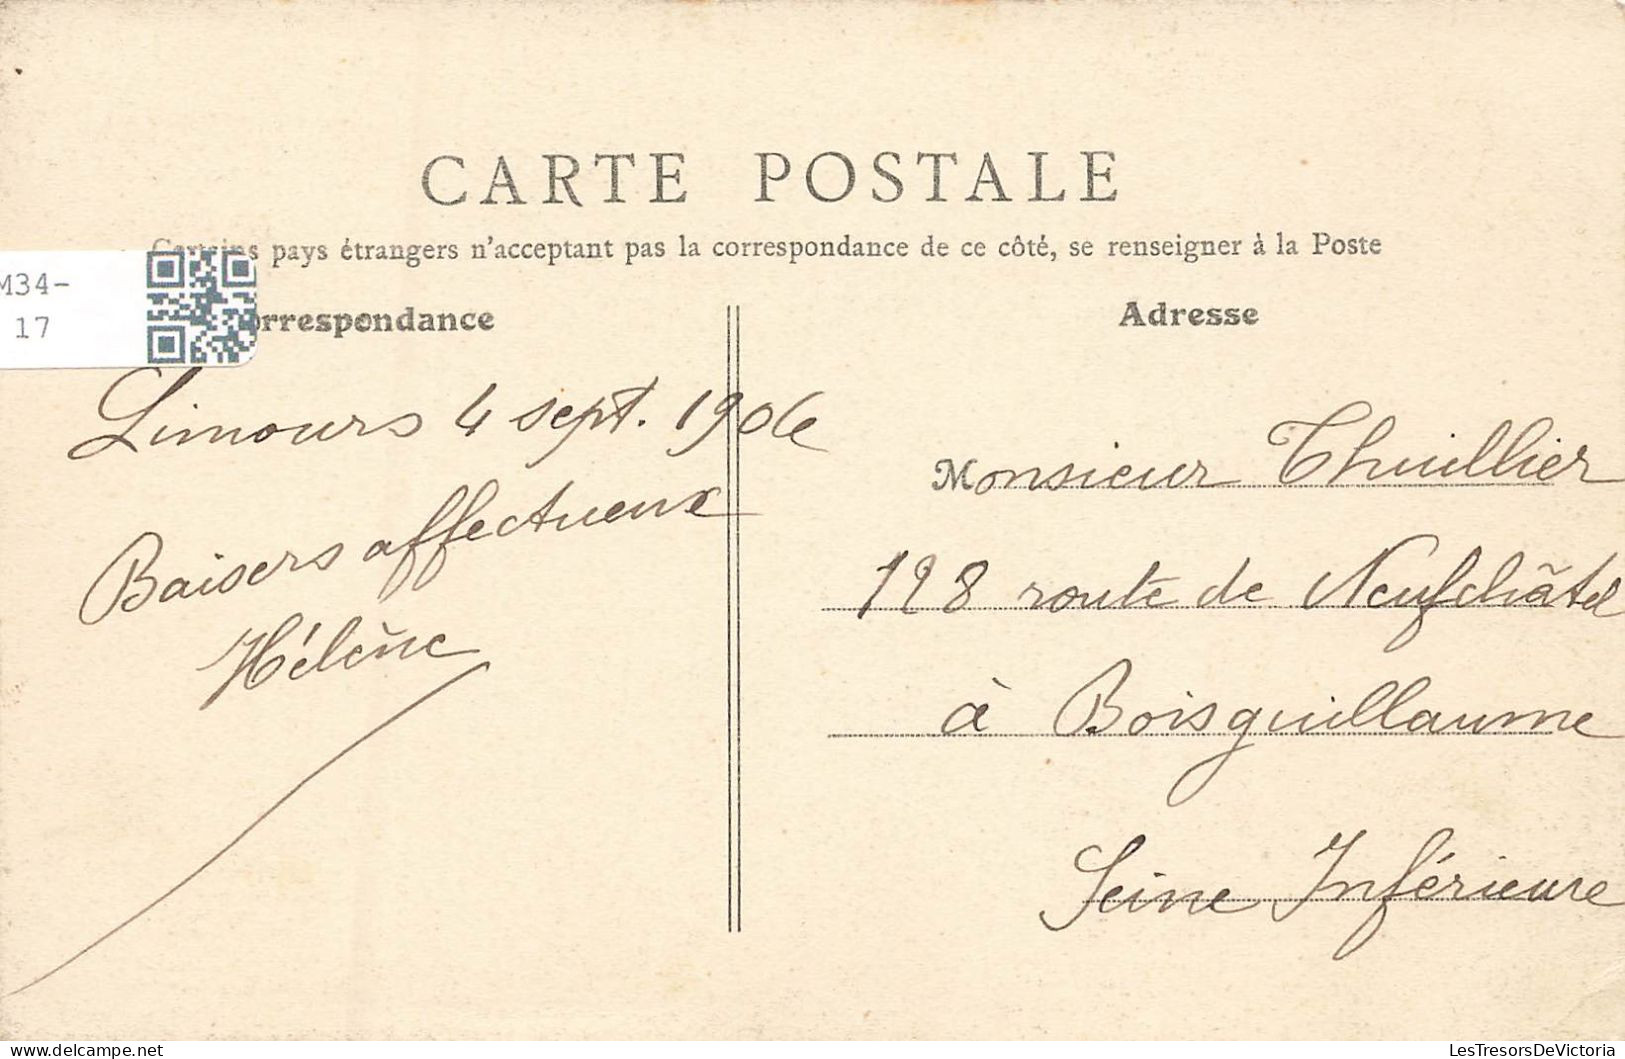 CARTE POSTALE
Certains pays étrangers n'acceptant pas la correspondance de ce côté, se renseigner à la Poste
M34-
17
Correspondance
Limours 4 sept. 1906
Baisers affectueux
Hélène
Adresse
Monsieur Thuillier
128 route de Neufchâtel
à Boisguillaume
Seine Inférieure
LesTresorsDeVictoria